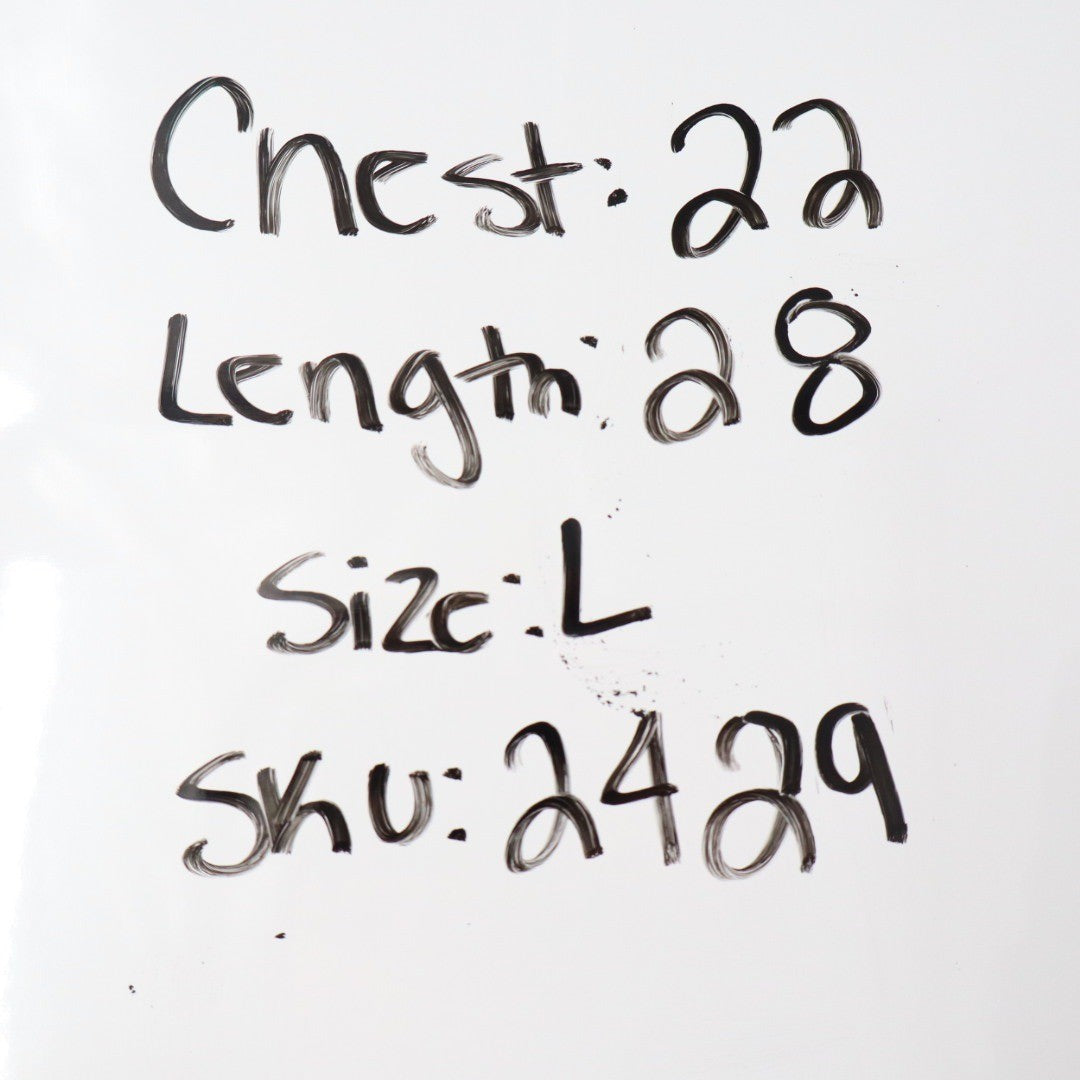 Chest: 22
Length: 28
Size: L
SKU: 2429